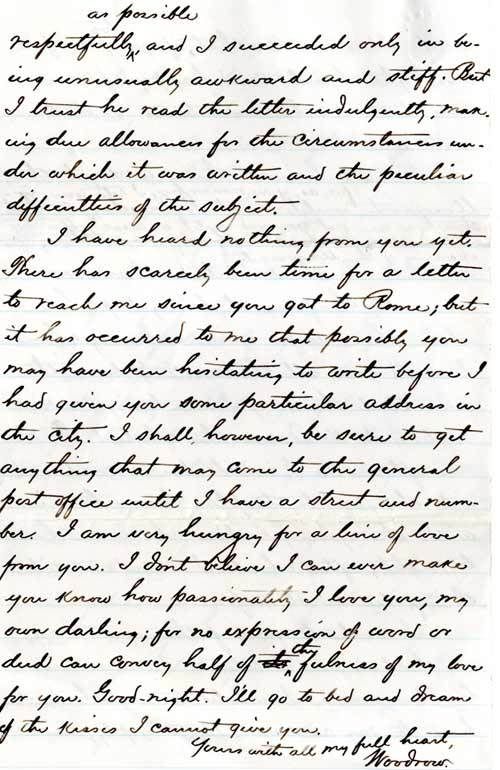 as possible
respectfully, and I succeeded only in be-
ing unusually awkward and stiff. But
I trust he read the letter indulgently, mak-
ing due allowances for the circumstances un-
der which it was written and the peculiar
difficulties of the subject.
I have heard nothing from you yet.
There has scarcely been time for a letter
to reach me since you got to Rome; but
it has occurred to me that possibly you
may have been hesitating to write before I
had given you some particular address in
the city. I shall, however, be sure to get
anything that may come to the general
post office until I have a street and num-
ber. I am very hungry for a line of love
from you. I don't believe I can ever make
you know how passionately I love you, my
own darling; for no expression of word or
deed can convey half of the fulness of my love
for you. Good-night. I'll go to bed and dream
of the kisses I cannot give you.
Yours with all my full heart,
Woodrow.